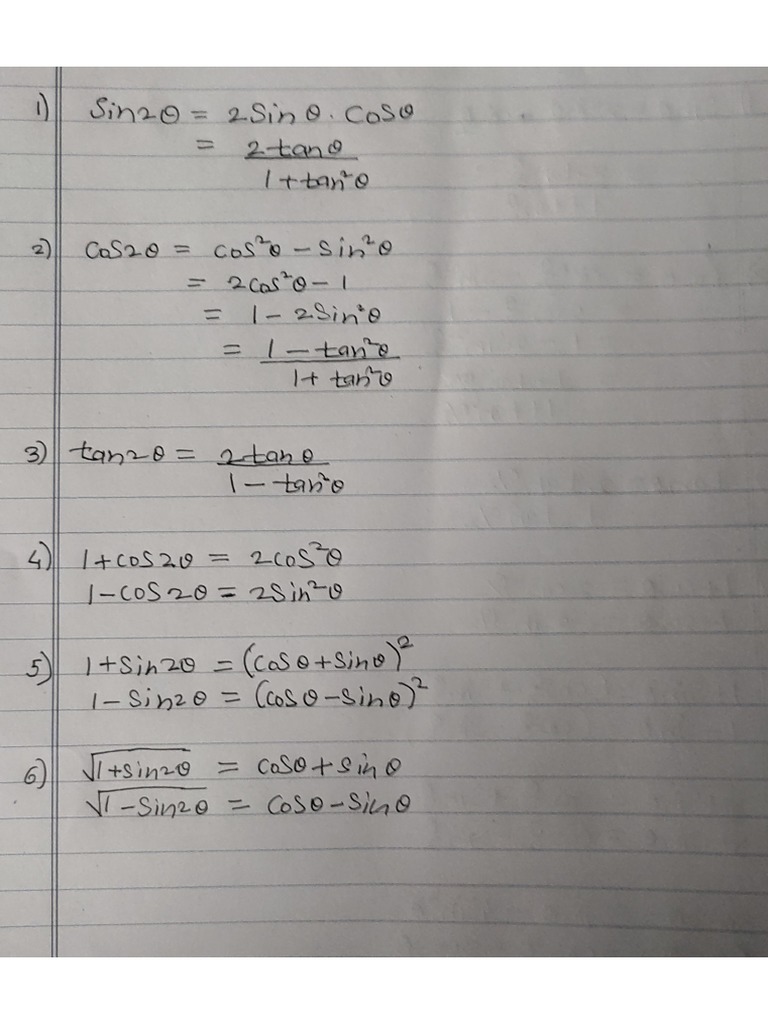 1) Sin2θ = 2Sinθ.Cosθ
= 2tanθ / 1+tan²θ
2) Cos2θ = cos²θ - Sin²θ
= 2cos²θ - 1
= 1 - 2Sin²θ
= 1 - tan²θ / 1+ tan²θ
3) tan2θ = 2tanθ / 1 - tan²θ
4) 1+cos2θ = 2cos²θ
1-cos2θ = 2Sin²θ
5) 1+Sin2θ = (Cosθ+Sinθ)²
1-Sin2θ = (Cosθ-Sinθ)²
6) √1+sin2θ = Cosθ+Sinθ
√1-Sin2θ = Cosθ-Sinθ